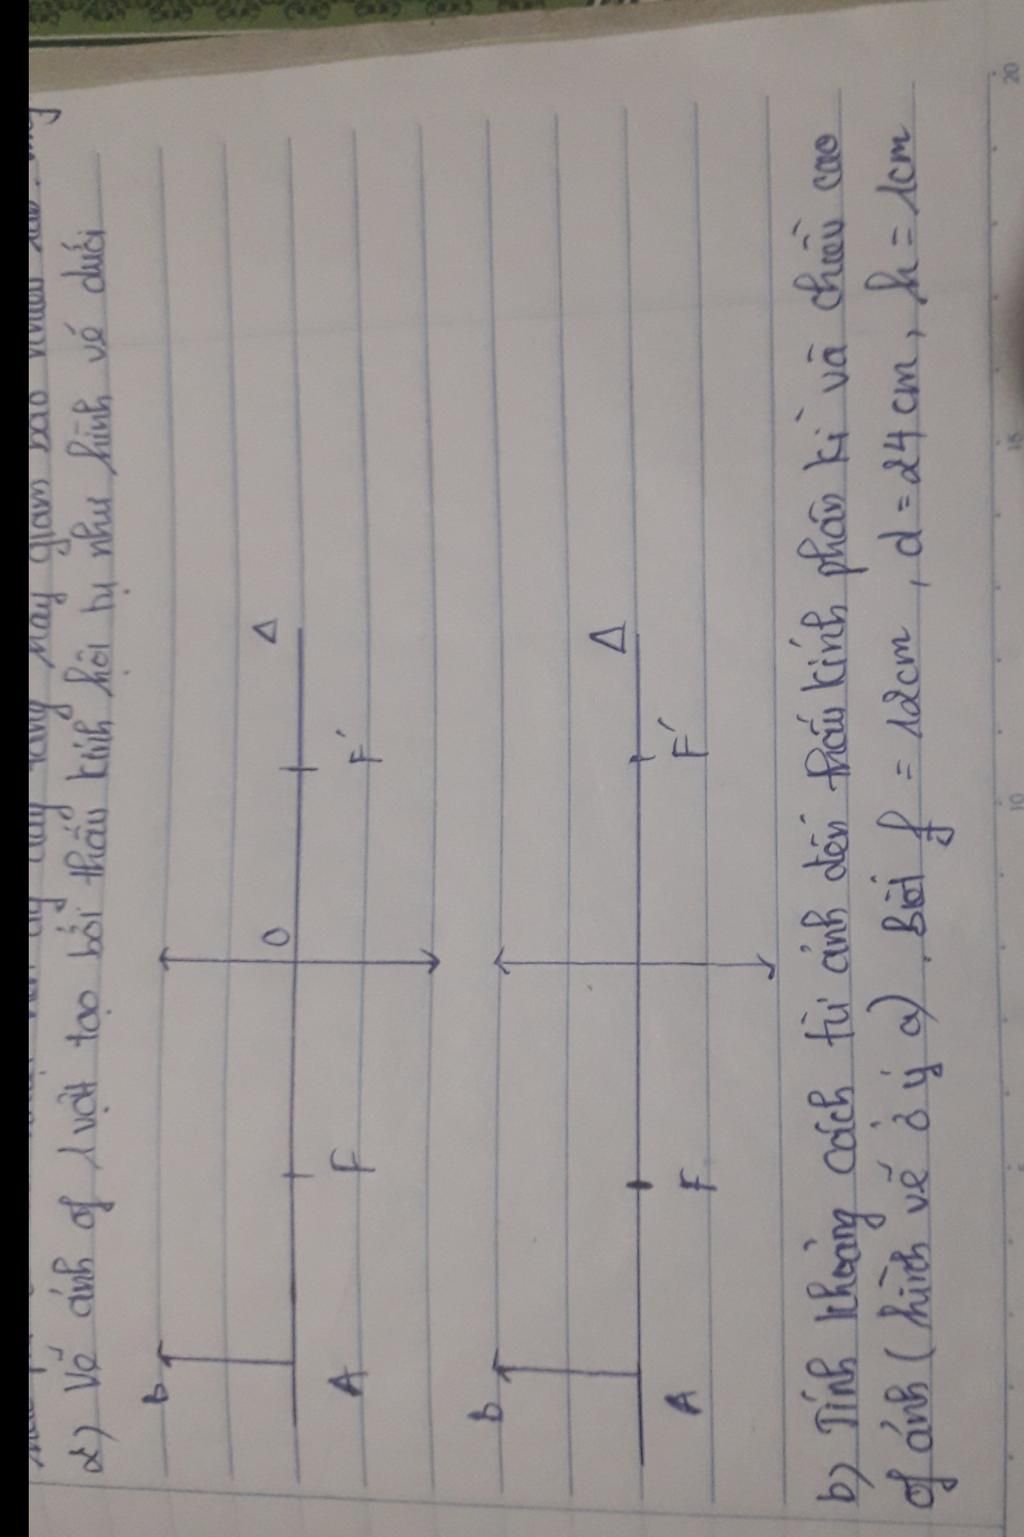 a) Vẽ ảnh of 1 vật tạo bởi thấu kính hội tụ như hình vẽ dưới
B
O
Δ
A
F
F'
B
Δ
A
F
F'
b) Tính khoảng cách từ ảnh đến thấu kính phân kì và chiều cao
of ảnh (hình vẽ ở ý a). Biết f = 12cm, d = 24cm, h = 1cm
10
15
20